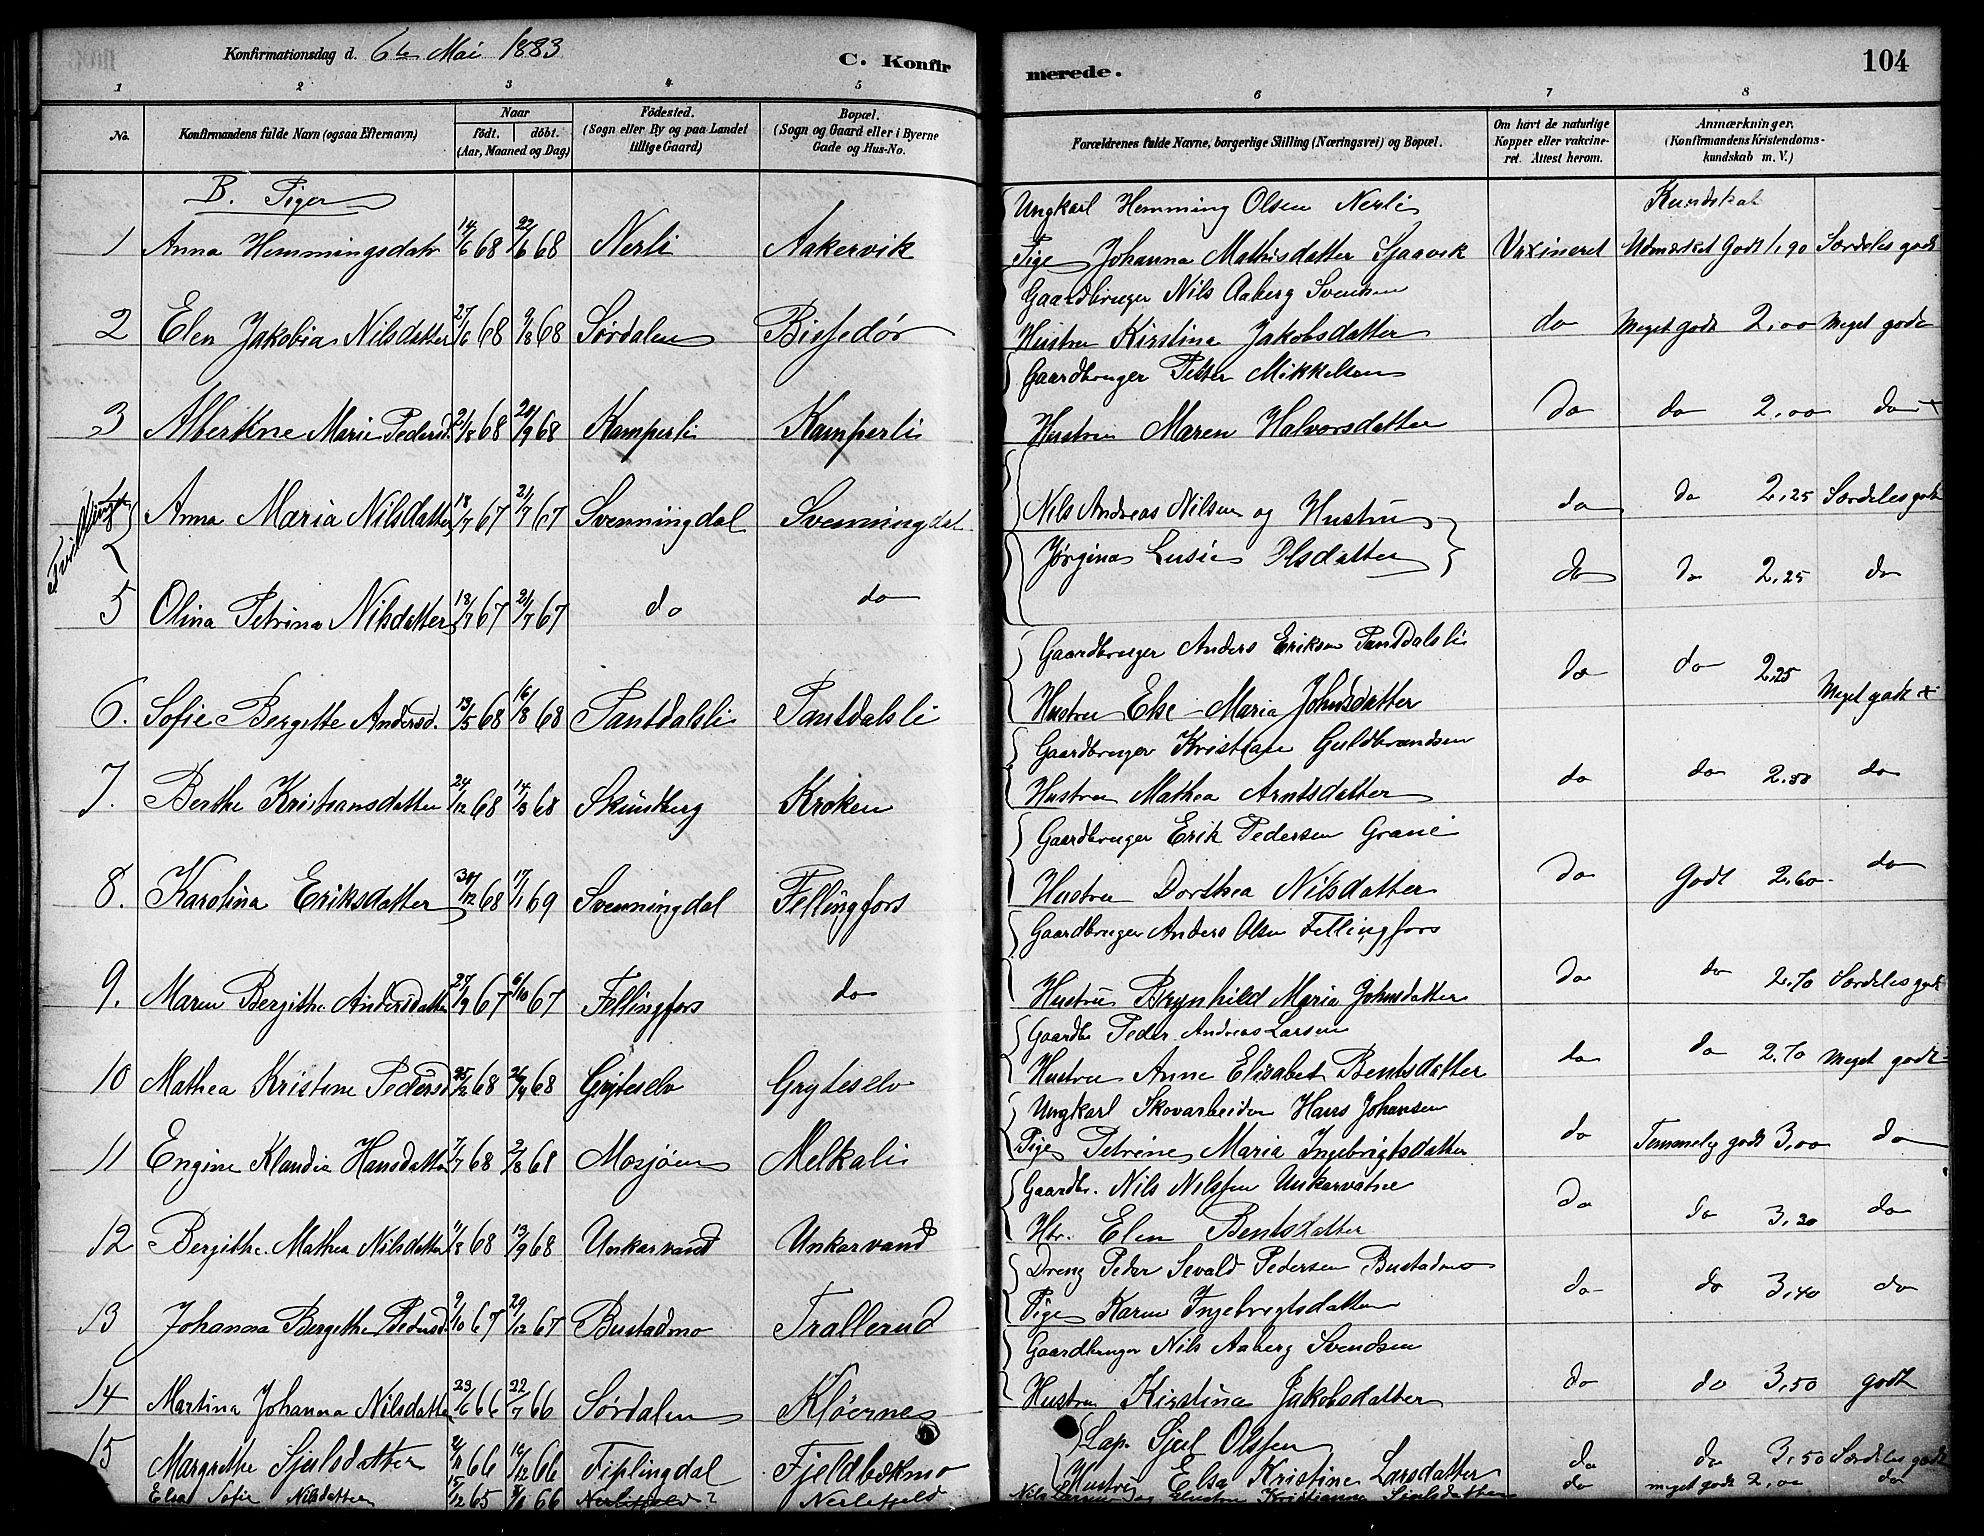 Konfirmationsdag d. 6te Mai 1883
C. Konfirmerede.
104
1 2 3 4 5 6 7 8
No.
Konfirmandens fulde Navn (ogsaa Efternavn)
Naar
født. døbt.
(Aar, Maaned og Dag)
Fødested.
(Sogn eller By og paa Landet tillige Gaard)
Bopæl.
(Sogn og Gaard eller i Byerne Gade og Hus-No.
Forældrenes fulde Navne, borgerlige Stilling (Næringsvei) og Bopæl.
Om havt de naturlige Kopper eller vakcineret. Attest herom.
Anmærkninger.
(Konfirmandens Kristendomskundskab m. V.)
B. Piger
Kundskab
Ungkarl Hemming Olsen Nerli
1 Anna Hemmingsdatr 14/6 68 22/6 68 Nerli Aakervik Pige Johanna Mathisdatter Sjaavik Vaxineret Udmærket Godt 1,90 Særdeles godt
Gaardbruger Nils Aaberg Svensen
2 Elen Jakobia Nilsdatter 27/6 68 9/8 68 Sørdalen Hustru Kirstina Jakobsdatter do Meget godt 2,00 Meget godt
Gaardbruger Petter Mikkelsen
3 Albertine Marie Pedersd. 2/8 68 20/9 68 Kamperli Kamperli Hustru Maren Halvorsdatter do do 2,00 do
Tvillinger
4 Anna Maria Nilsdatter 18/7 67 21/7 67 Svenningdal Svenningdal Nils Andreas Nilsen og Hustru do do 2,25 Særdeles godt
Jørgina Lusie Olsdatter
5 Olina Petrina Nilsdatter 18/7 67 21/7 67 do do do do 2,25 do
Gaardbruger Anders Eriksen Pantdalsli
6. Sofie Bergitte Andersd. 13/5 68 16/8 68 Pantdalsli Pantdalsli Hustru Else Maria Johnsdatter do do 2,25 Meget godt
Gaardbruger Kristian Guldbrandsen
7. Berthe Kristiansdatter 24/12 68 14/3 68 Skundberg Kroken Hustru Mathea Arntsdatter do do 2.50 do
Gaardbruger Erik Pedersen Grane
8. Karolina Eriksdatter 30/12 68 17/1 69 Svenningdal Fellingfors Hustru Dorthea Nilsdatter do Godt 2,60 do
Gaardbruger Anders Olsen Fellingfors
9. Maren Bergithe Andersdatter 27/9 67 6/10 67 Fellingfors do Hustru Brynhild Maria Johnsdatter do do 2.70 Særdeles godt
Gaardbr Peder Andreas Larsen
10 Mathea Kristine Pedersd 25/2 68 26/4 68 Gryteselv Gryteselv Hustru Anne Elisabet Bentsdatter do do 2,70 Meget godt
Ungkarl Skovarbeider Hans Johansen
11 Engine Klaudia Hansdatter 7/7 68 2/8 68 Mosjøen Melkali Pige Petrine Maria Ingebrigtsdatter do Temmelig godt 3,00 do
Gaardbr. Nils Nilssen Unkarvatne
12 Bergithe Mathea Nilsdatter 11/8 68 13/9 68 Unkarvand Unkarvand Htr. Elen Bentsdatter do do 3,20 do
Dreng Peder Sevald Pedersen Bustadmo
13 Johanna Bergethe Pedersd 9/10 67 29/12 67 Bustadmo Trallerud Pige Karen Ingebrigtsdatter do do 3,40 do
Gaardbruger Nils Aaberg Svendsen
14 Martina Johanna Nilsdatter 23/6 66 22/7 66 Sørdalen Kløvrnes Hustru Kirstina Jakobsdatter do do 3,50 godt
Lap. Sjul Olssen
15 Margrethe Sjulsdatter 2/11 66 14/12 66 Fiplingdal Fjeldbekmo Hustru Elsa Kristine Larsdatter do do 3,50 Særdeles godt
Elsa Sofie Nilsdatter 15/12 65 66 Nerlifjeld? Nerlifjeld Nils Larsen og Hustru Kristianna Sjulsdatter do meget godt 2,00 do